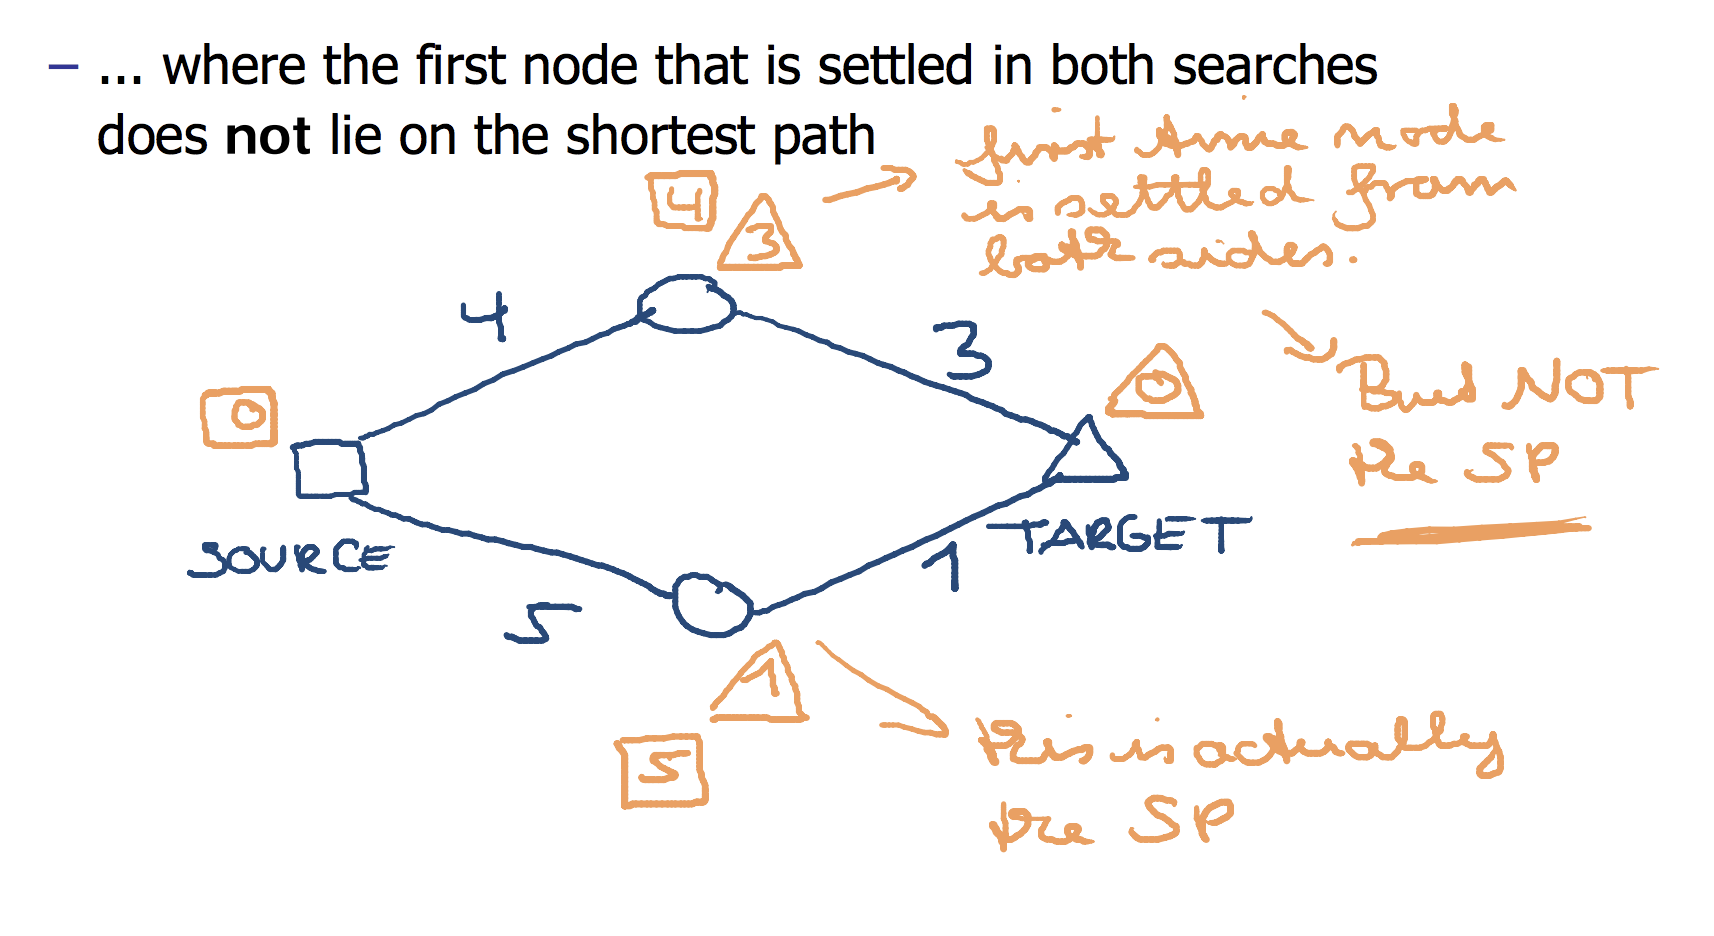 – ... where the first node that is settled in both searches
does not lie on the shortest path
first time node
is settled from
both sides.
4
3
4
3
0
0
But NOT
the SP
SOURCE
TARGET
5
1
1
5
this is actually
the SP